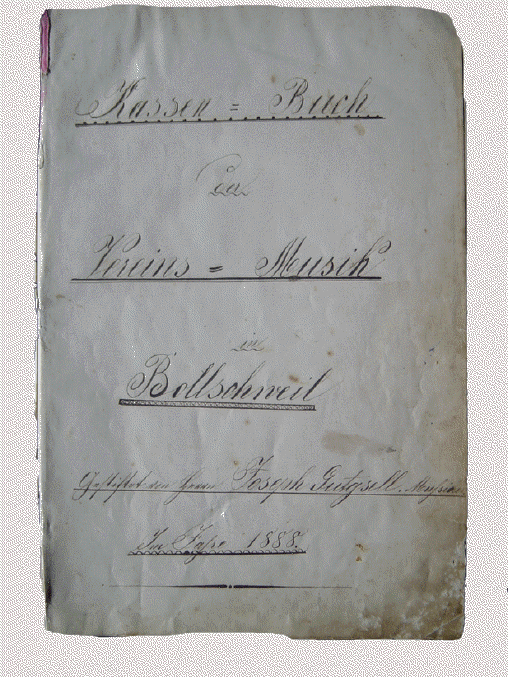 Kassen = Buch
der
Vereins = Musik
in
Bollschweil
Gestiftet von Herrn Joseph Gutgsell. Musiker
Im Jahre 1888.